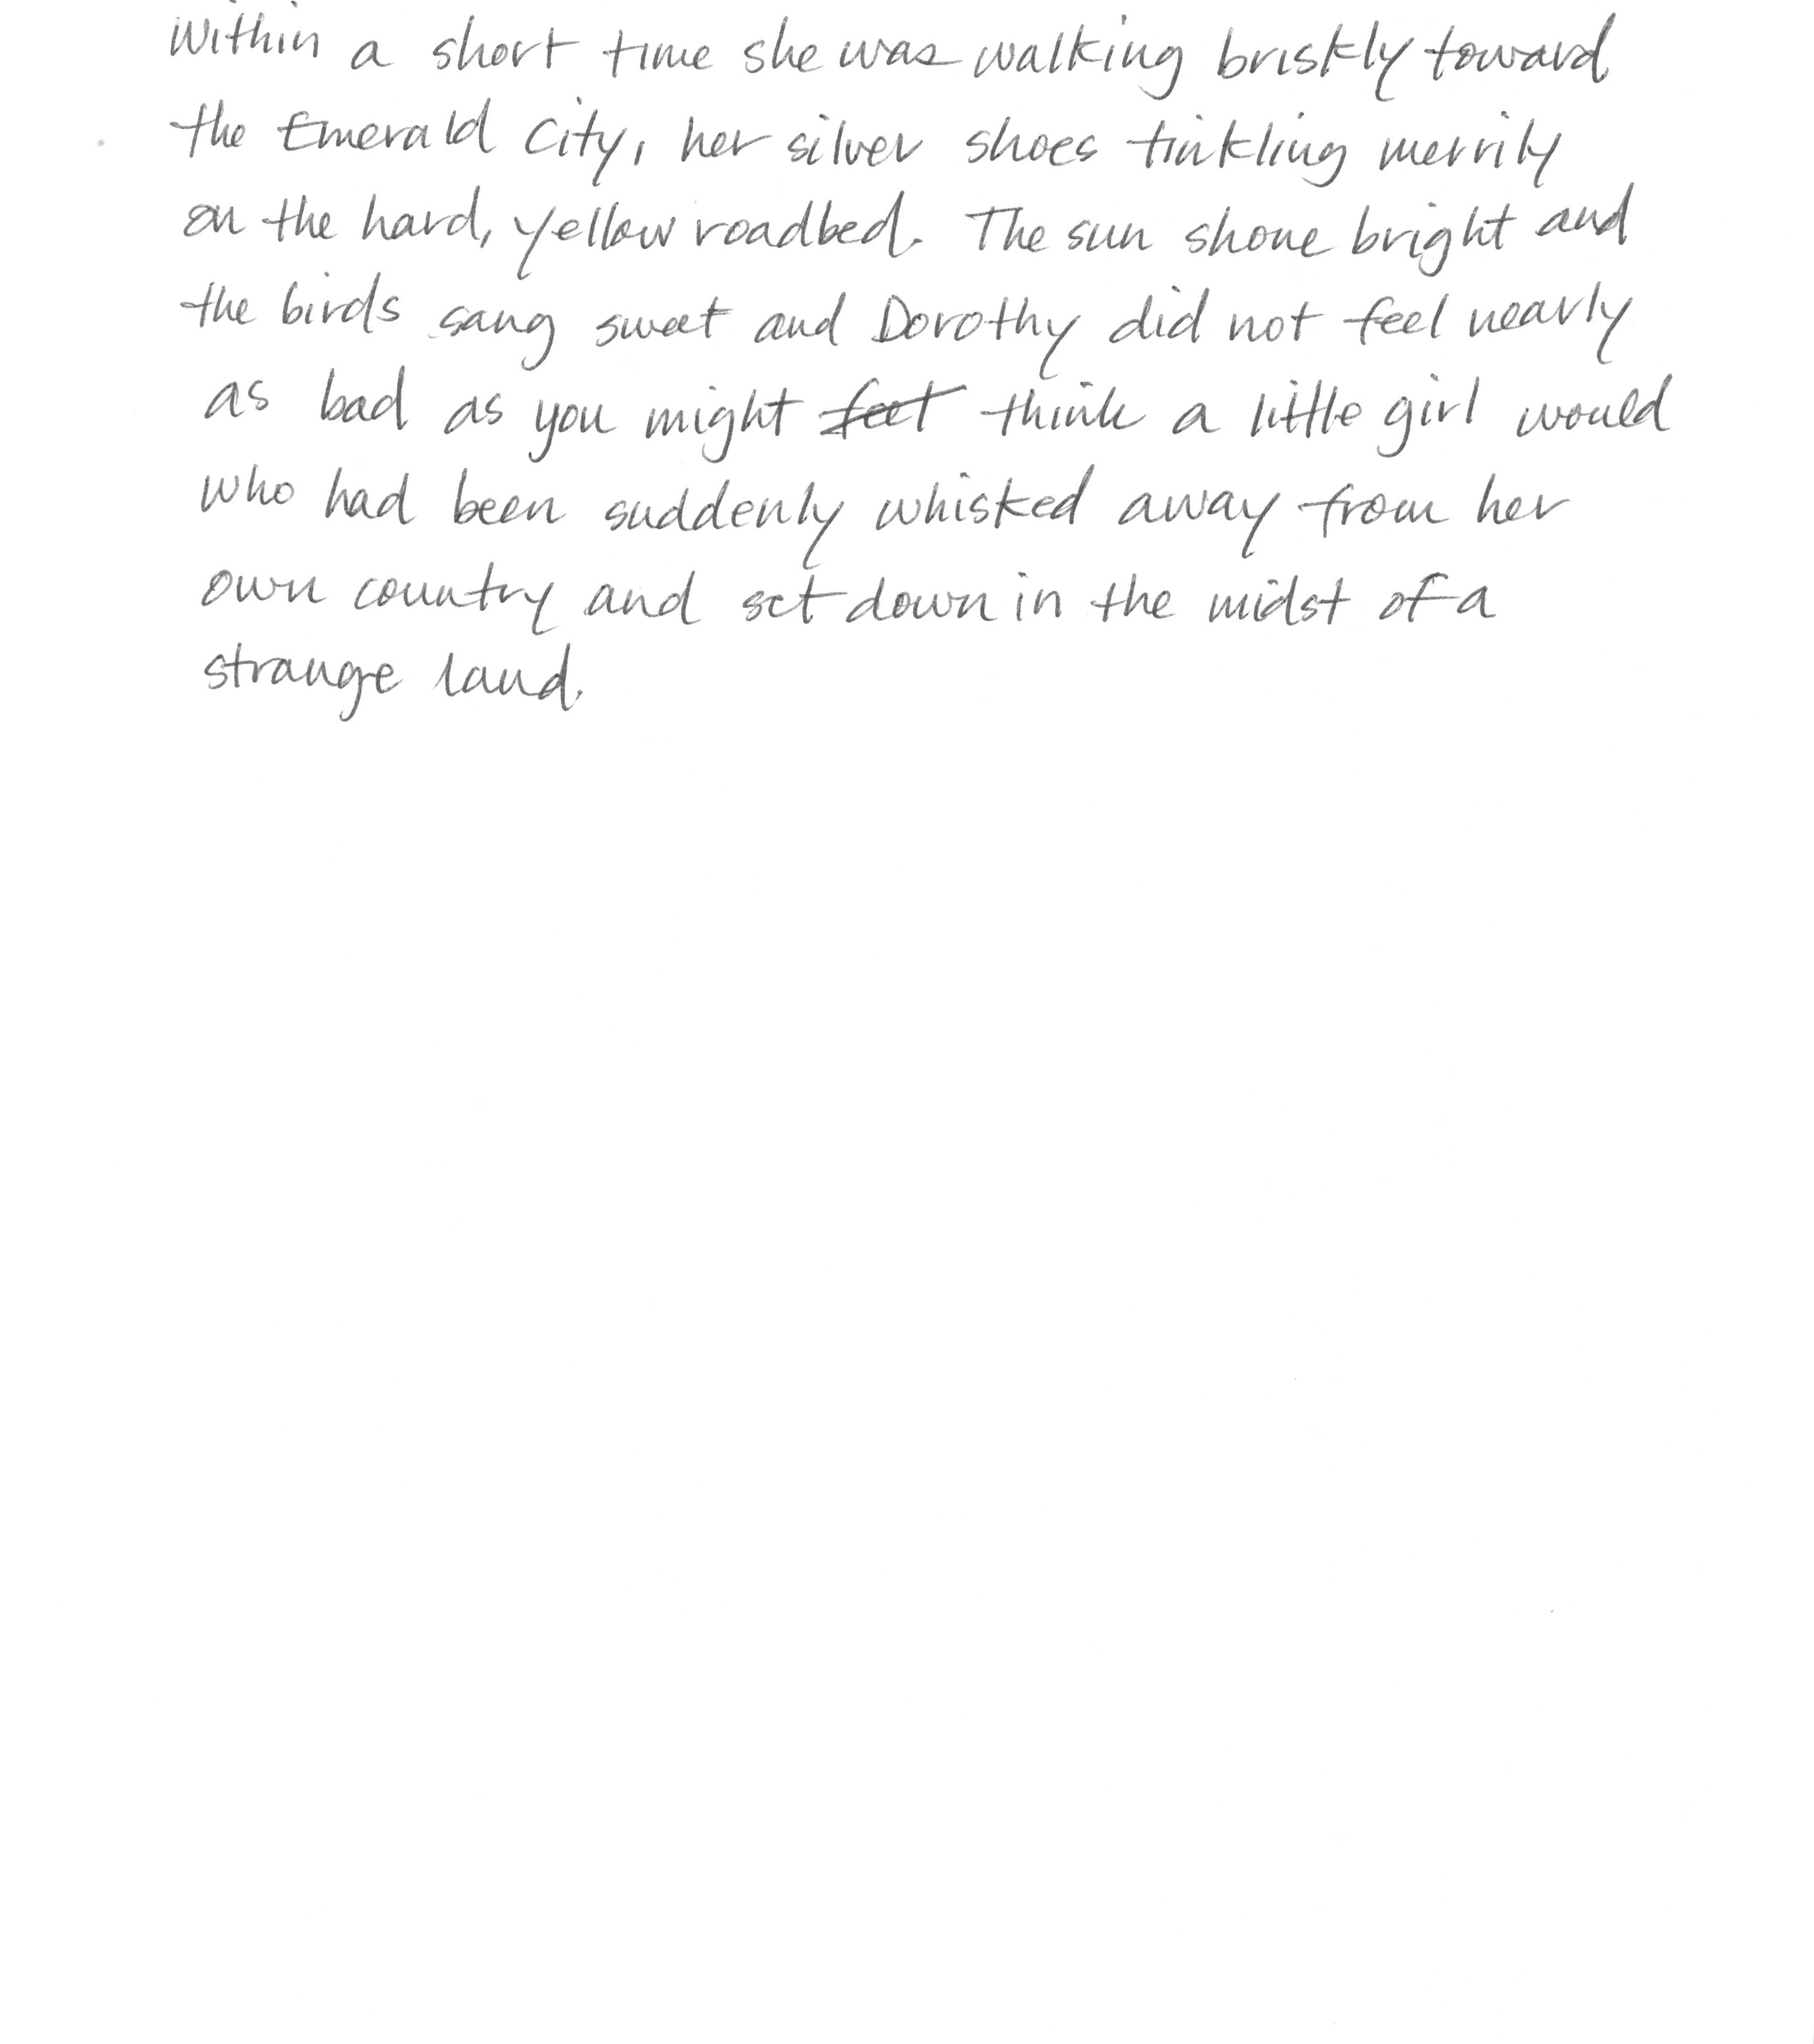 Within a short time she was walking briskly toward
the Emerald City, her silver shoes tinkling merrily
on the hard, yellow roadbed. The sun shone bright and
the birds sang sweet and Dorothy did not feel nearly
as bad as you might feet think a little girl would
who had been suddenly whisked away from her
own country and set down in the midst of a
strange land.